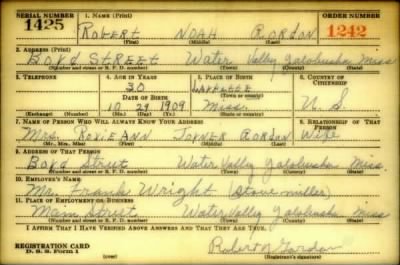 SERIAL NUMBER 1. NAME (Print) ORDER NUMBER
1425 ROBERT NOAH GORDON 1242
(First) (Middle) (Last)
2. ADDRESS (Print)
BOYD STREET Water Valley Yalobusha Miss
(Number and street or R. F. D. number) (Town) (County) (State)
3. TELEPHONE 4. AGE IN YEARS 5. PLACE OF BIRTH 6. COUNTRY OF CITIZENSHIP
30 LAFAYETTE
DATE OF BIRTH (Town or county)
10 29 1909 Miss. U. S.
(Exchange) (No.) (Mo.) (Day) (Yr.) (State or country)
7. NAME OF PERSON WHO WILL ALWAYS KNOW YOUR ADDRESS 8. RELATIONSHIP OF THAT PERSON
Mrs. ROXIE ANN JOYNER GORDON Wife
(Mr., Mrs., Miss) (First) (Middle) (Last)
9. ADDRESS OF THAT PERSON
Boyd Street Water Valley Yalobusha Miss.
(Number and street or R. F. D. number) (Town) (County) (State)
10. EMPLOYER'S NAME
Mr. Frank Wright
11. PLACE OF EMPLOYMENT OR BUSINESS
Main Street Water Valley Yalobusha Miss
(Number and street or R. F. D. number) (Town) (County) (State)
I AFFIRM THAT I HAVE VERIFIED ABOVE ANSWERS AND THAT THEY ARE TRUE.
REGISTRATION CARD Robert N Gordon
D. S. S. Form 1 (over) (Registrant's signature)